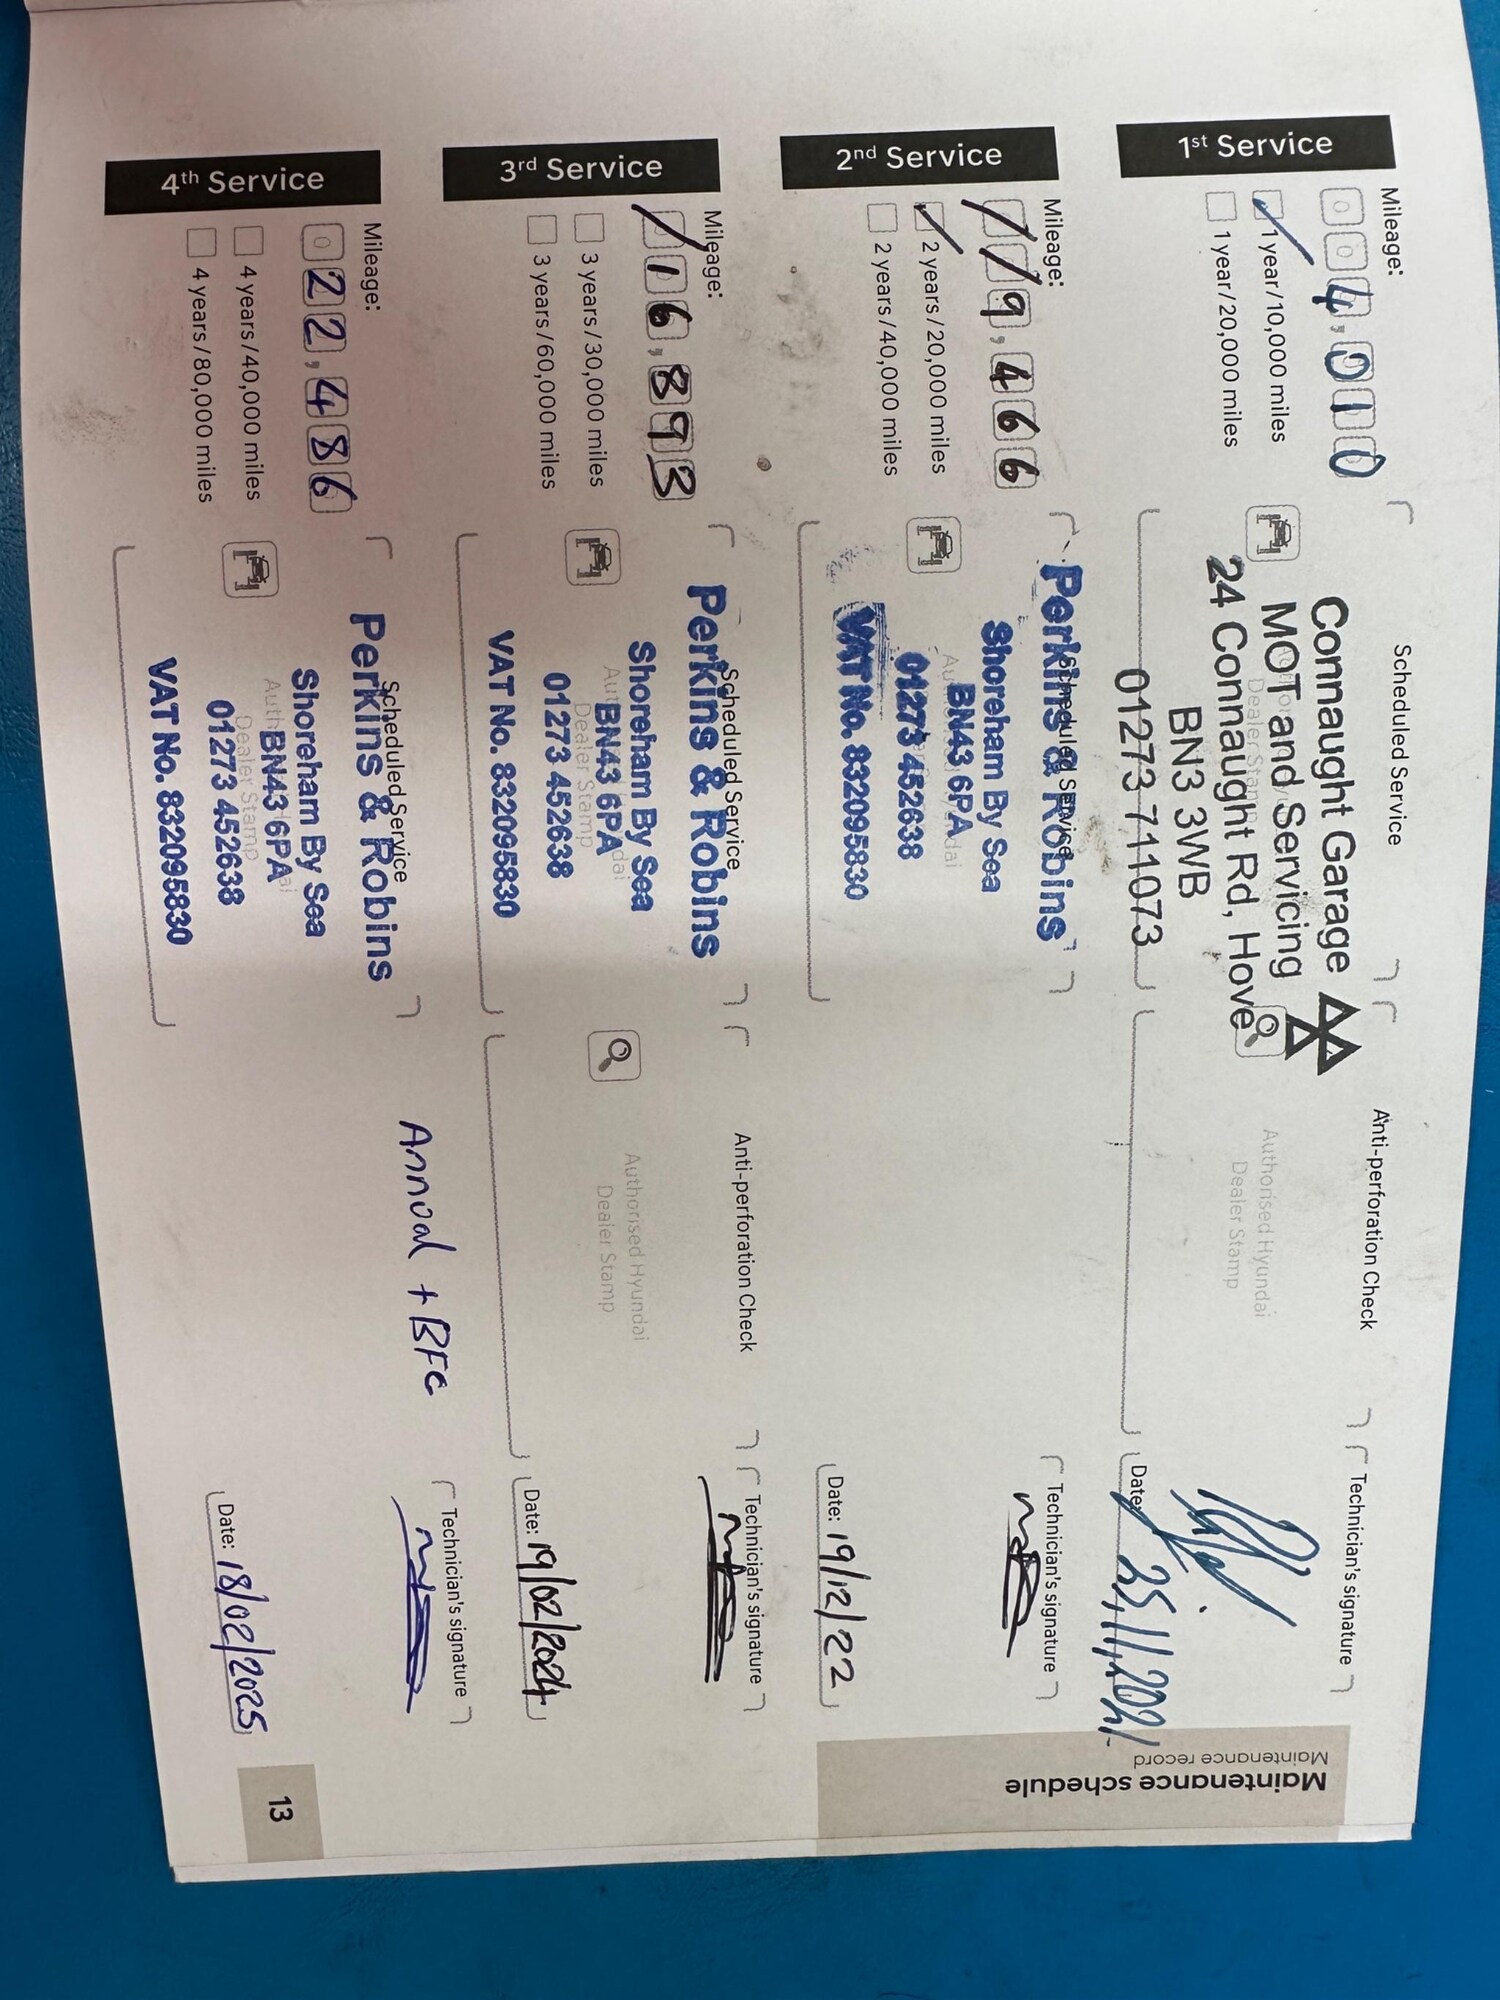 Maintenance schedule
Maintenance record
1st Service
Mileage:
004,010
1 year/10,000 miles
1 year/20,000 miles
Scheduled Service
Connaught Garage
MOT and Servicing
24 Connaught Rd, Hove
BN3 3WB
01273 711073
Dealer Stamp
Anti-perforation Check
Authorised Hyundai
Dealer Stamp
Technician's signature
Date: 25,11,2021
2nd Service
Mileage:
//9,466
2 years/20,000 miles
2 years/40,000 miles
Scheduled Service
Perkins & Robins
Shoreham By Sea
BN43 6PA
01273 452638
VAT No. 832095830
Technician's signature
Date: 19/12/22
3rd Service
Mileage:
/16,893
3 years/30,000 miles
3 years/60,000 miles
Scheduled Service
Perkins & Robins
Shoreham By Sea
BN43 6PA
Dealer Stamp
01273 452638
VAT No. 832095830
Anti-perforation Check
Authorised Hyundai
Dealer Stamp
Technician's signature
Date: 19/02/2024
4th Service
Mileage:
022,486
4 years/40,000 miles
4 years/80,000 miles
Scheduled Service
Perkins & Robins
Shoreham By Sea
BN43 6PA
Dealer Stamp
01273 452638
VAT No. 832095830
Annual + BFC
Technician's signature
Date: 18/02/2025
13